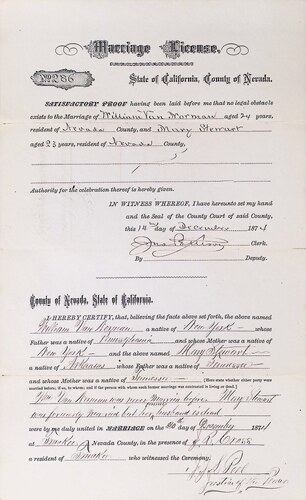 Marriage License.
No. 286
State of California, County of Nevada.
SATISFACTORY PROOF having been laid before me that no legal obstacle
exists to the Marriage of William Van Norman aged 24 years,
resident of Nevada County, and Mary Stewart
aged 23 years, resident of Nevada County,
Authority for the celebration thereof is hereby given.
IN WITNESS WHEREOF, I have hereunto set my hand
and the Seal of the County Court of said County,
this 14th day of December 1874
Clerk.
By Deputy.
County of Nevada, State of California.
I HEREBY CERTIFY, that, believing the facts above set forth, the above named
William Van Norman a native of New York — whose
Father was a native of Pennsylvania and whose Mother was a native of
New York — and the above named Mary Stewart —
a native of whose Father was a native of Tennessee —
and whose Mother was a native of Tennessee —
Wm Van Norman was never Married before Mary Stewart
was formerly married but her husband
were by me duly united in MARRIAGE on the day of December 1874
at Truckee Nevada County, in the presence of J. R. Cross
resident of Truckee who witnessed the Ceremony.
Justice of the Peace